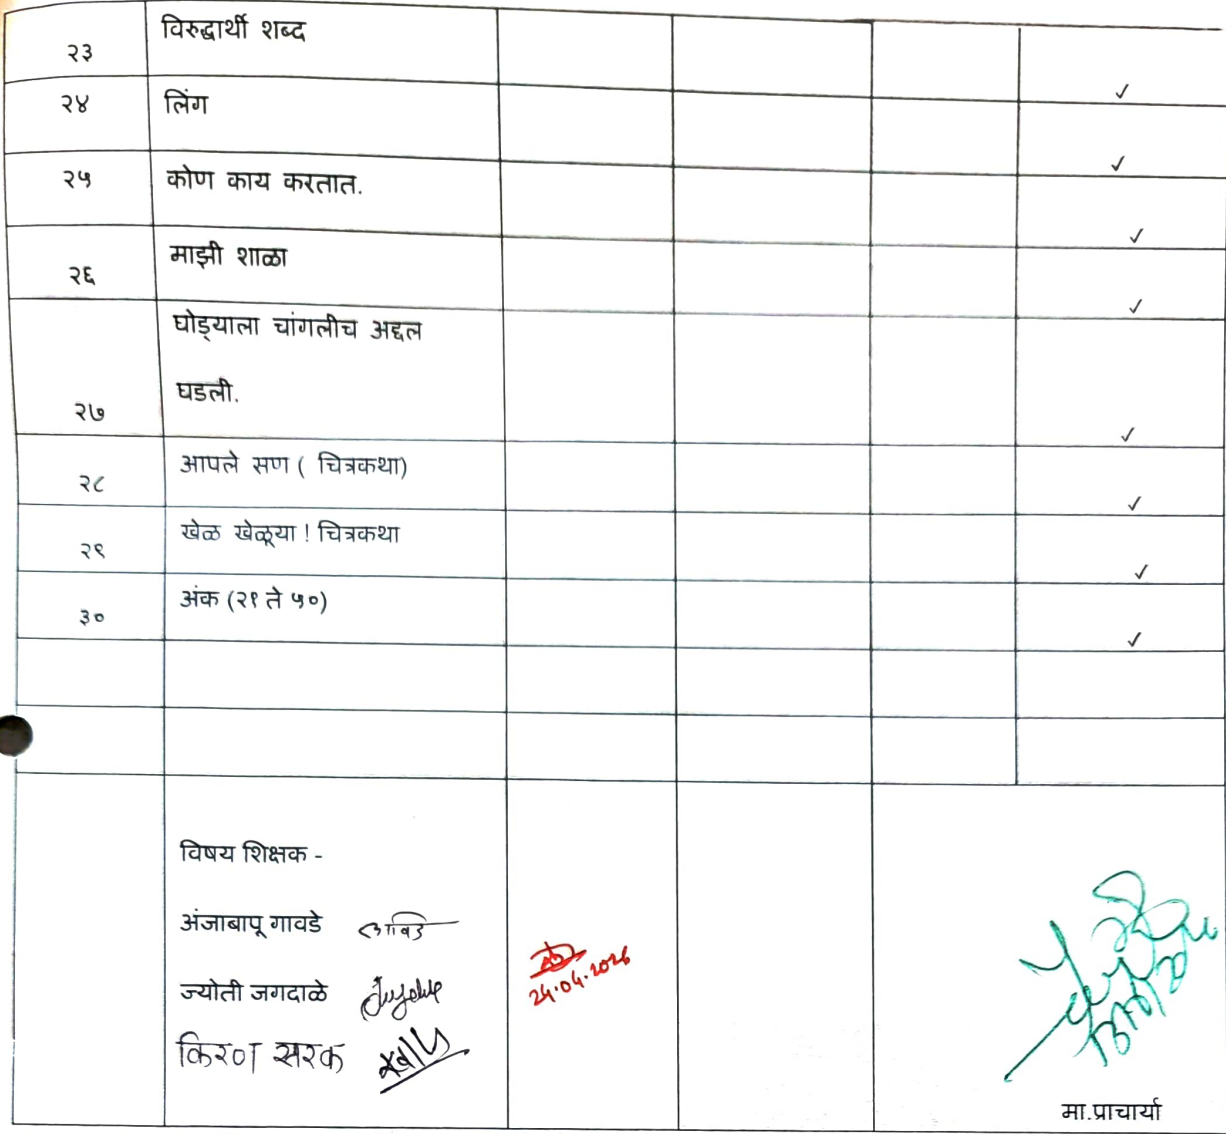 २३ विरुद्धार्थी शब्द ✓
२४ लिंग ✓
२५ कोण काय करतात. ✓
२६ माझी शाळा ✓
घोड्याला चांगलीच अद्दल
२७ घडली. ✓
२८ आपले सण ( चित्रकथा) ✓
२९ खेळ खेळूया ! चित्रकथा ✓
३० अंक (२१ ते ५०) ✓
विषय शिक्षक -
अंजाबापू गावडे
ज्योती जगदाळे
24.04.2026
किरण सरक
मा.प्राचार्या